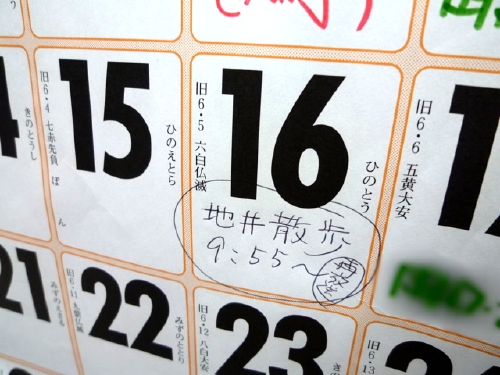 15
旧6・4 七赤先負 ぼん
ひのえとら
16
旧6・5 六白仏滅
ひのとう
地井散歩
9:55〜
再放送
旧6・6 五黄大安
きのとうし
21
みずのえさる
22
旧6・11 九紫仏滅
みずのととり
23
旧6・12 八白大安
旧6・13